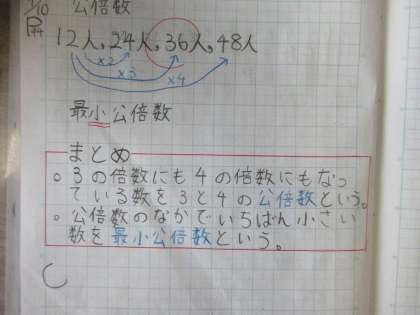 /10 公倍数
P74
12人、24人、36人、48人
×2
×3
×4
最小公倍数
まとめ
○ 3の倍数にも4の倍数にもなっ
ている数を3と4の公倍数という。
○ 公倍数のなかでいちばん小さい
数を最小公倍数という。